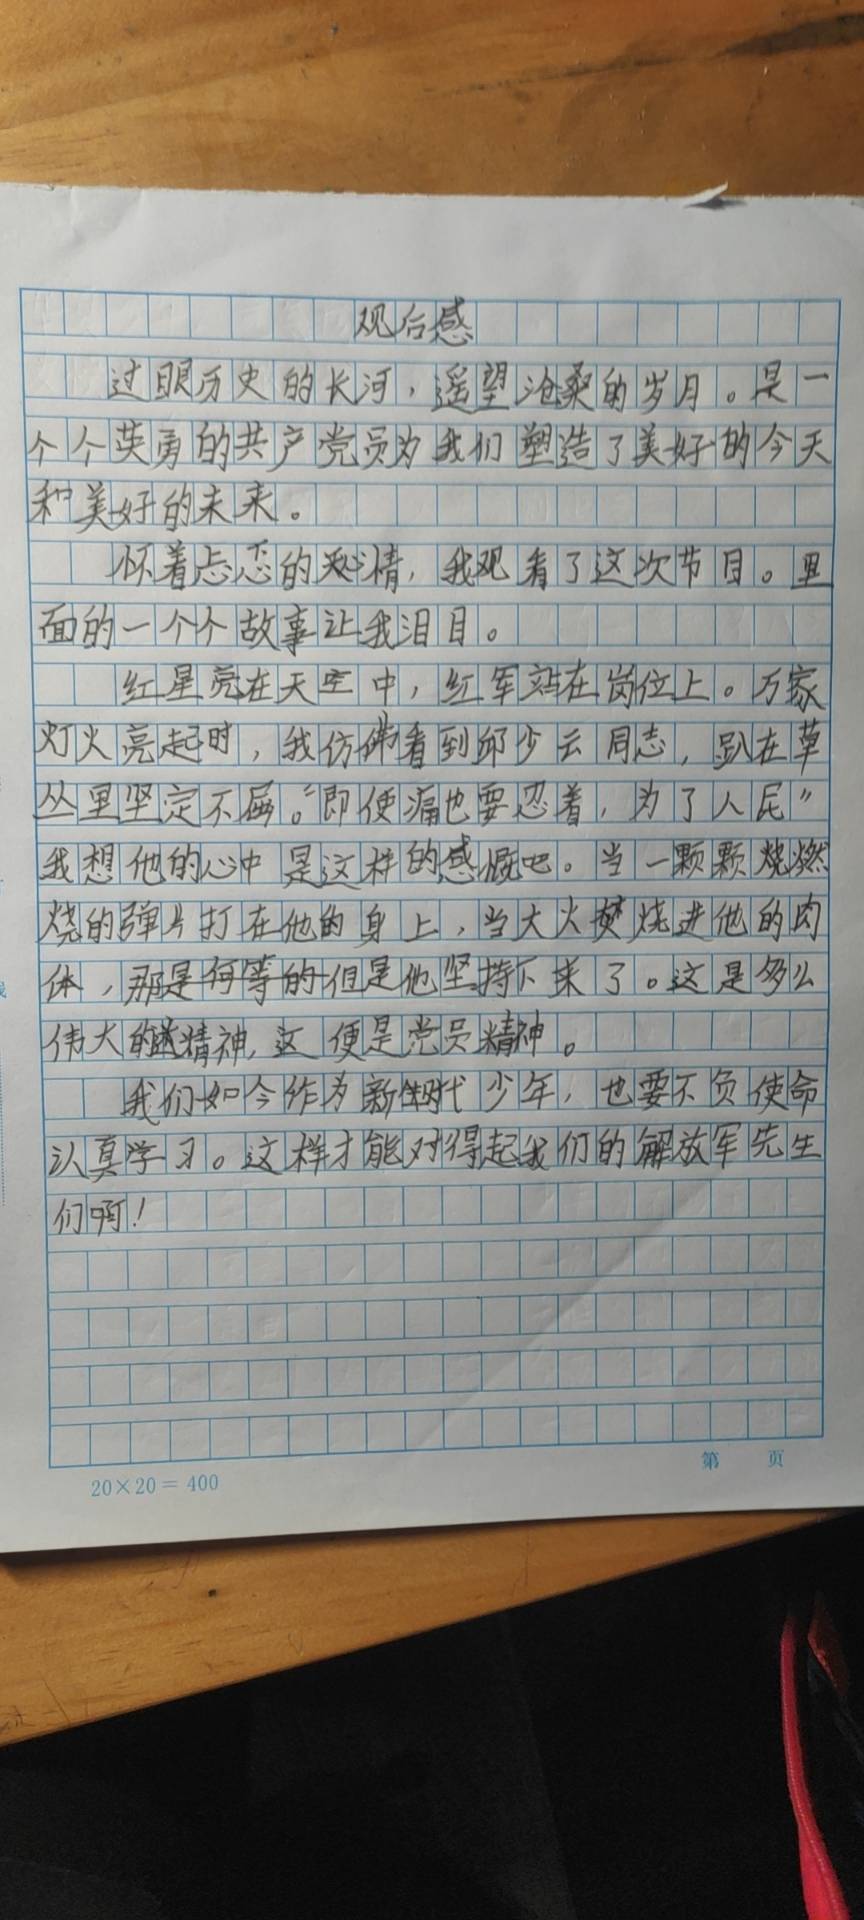 观后感
过眼历史的长河，遥望沧桑的岁月。是一
个个英勇的共产党员为我们塑造了美好的今天
和美好的未来。
怀着忐忑的心情，我观看了这次节目。里
面的一个个故事让我泪目。
红星亮在天空中，红军站在岗位上。万家
灯火亮起时，我仿佛看到邱少云同志，趴在草
丛里坚定不屈。“即使痛也要忍着，为了人民”
我想他的心中是这样的感慨吧。当一颗颗烧燃
烧的弹片打在他的身上，当大火焚烧进他的肉
体，那是何等的但是他坚持下来了。这是多么
伟大的精神，这便是党员精神。
我们如今作为新时代少年，也要不负使命
认真学习。这样才能对得起我们的解放军先生
们啊！
20×20＝400
第 页